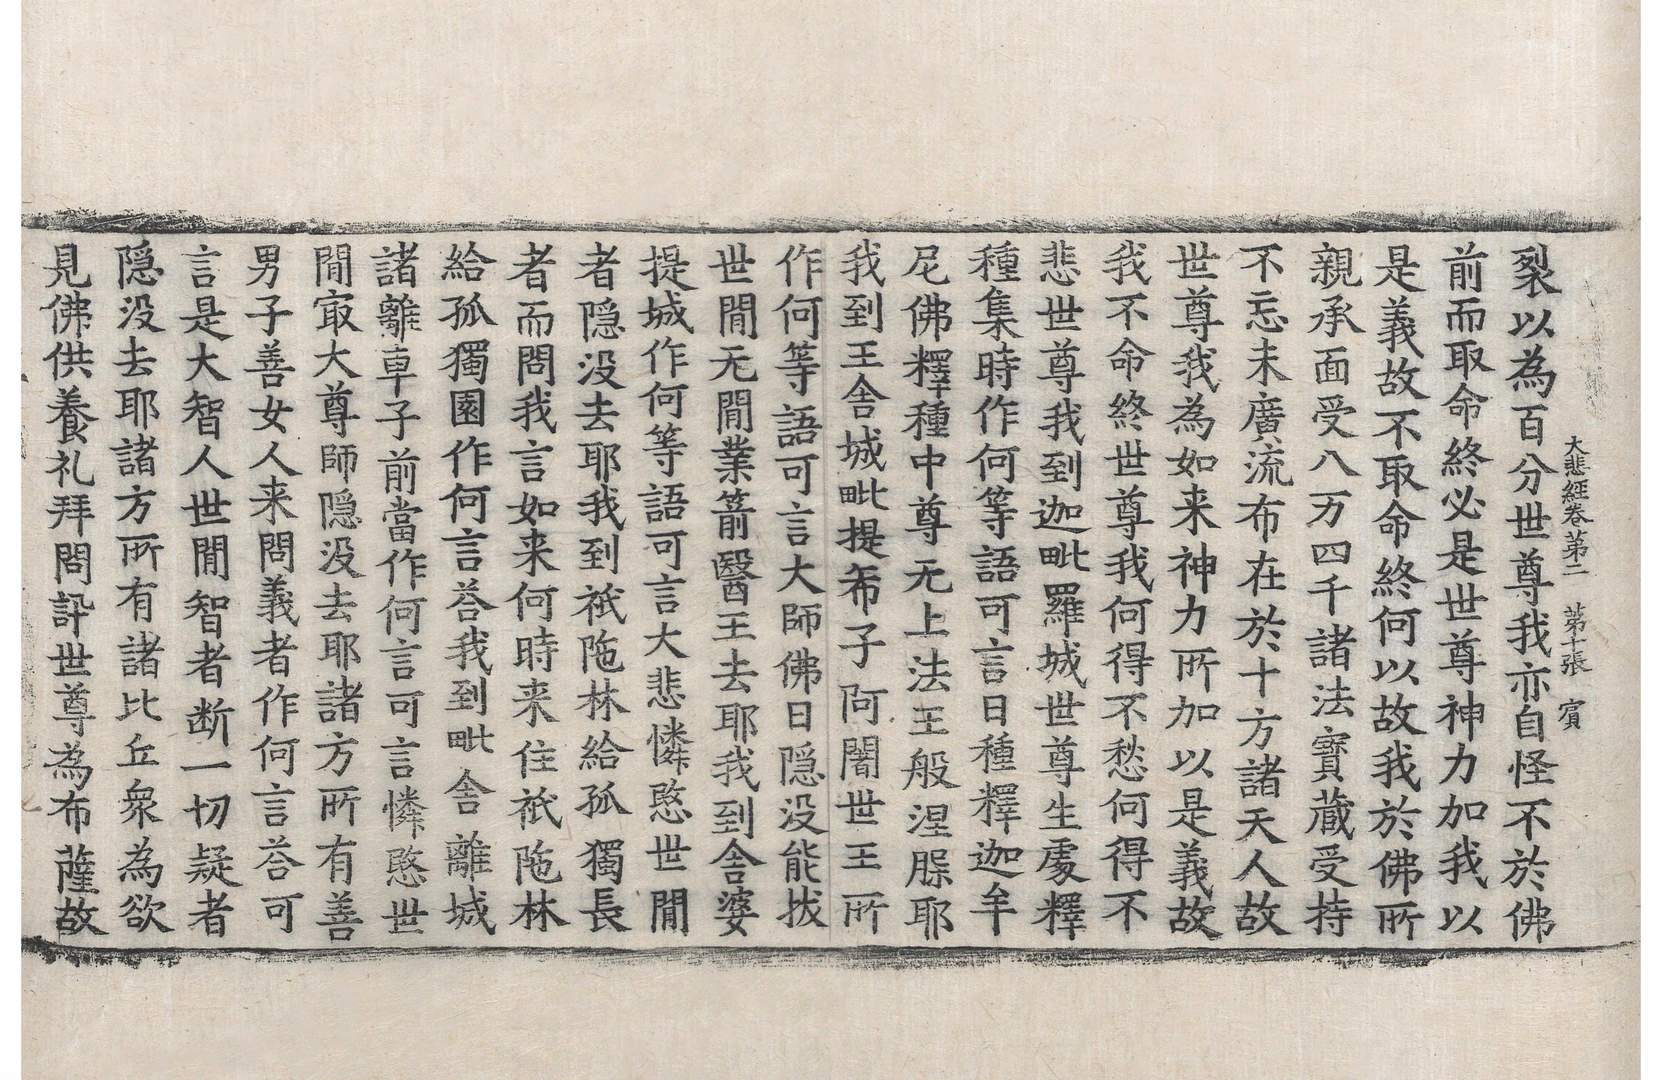 大悲經卷第二　第十張　賓
裂以為百分世尊我亦自怪不於佛
前而取命終必是世尊神力加我以
是義故不取命終何以故我於佛所
親承面受八万四千諸法寶藏受持
不忘未廣流布在於十方諸天人故
世尊我為如来神力所加以是義故
我不命終世尊我何得不愁何得不
悲世尊我到迦毗羅城世尊生處釋
種集時作何等語可言日種釋迦牟
尼佛釋種中尊无上法王般涅脲耶
我到王舍城毗提希子阿闍世王所
作何等語可言大師佛日隱没能拔
世間无間業箭醫王去耶我到舍婆
提城作何等語可言大悲憐愍世間
者隱没去耶我到祇陁林給孤獨長
者而問我言如来何時来住祇陁林
給孤獨園作何言荅我到毗舍離城
諸離車子前當作何言可言憐愍世
間㝡大尊師隱没去耶諸方所有善
男子善女人来問義者作何言荅可
言是大智人世間智者断一切疑者
隱没去耶諸方所有諸比丘衆為欲
見佛供養礼拜問訊世尊為布薩故